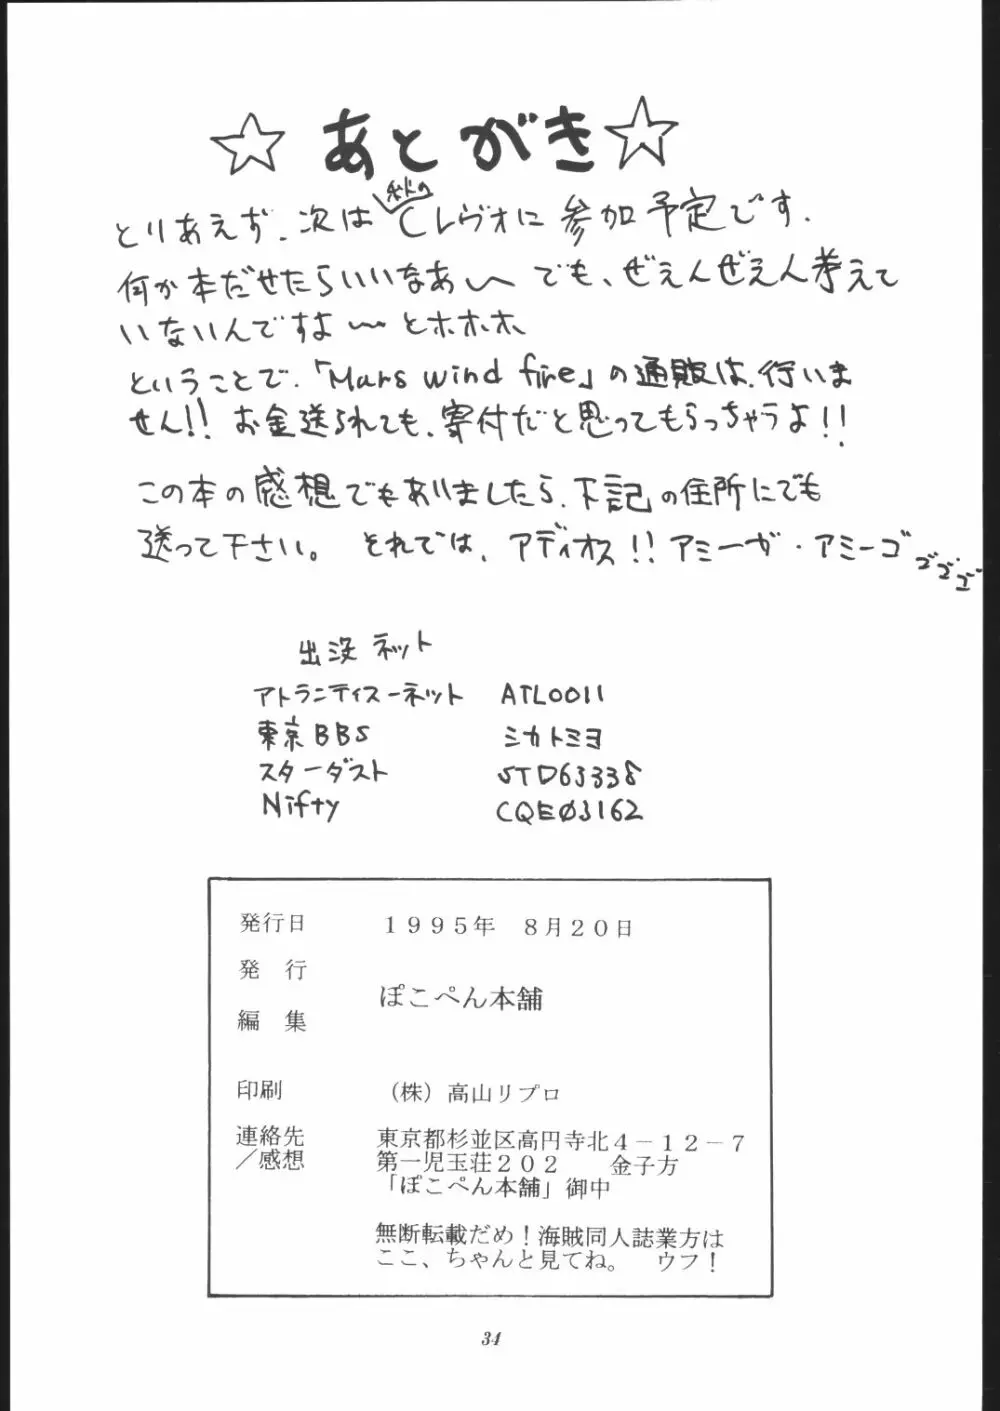 ☆ あとがき ☆
とりあえず、次は秋のCレヴォに参加予定です.
何か本だせたらいいなあ〜 でも、ぜえんぜえん考えて
いないんですよ〜 とホホホ
ということで、「Mars wind fire」の通販は、行いま
せん!! お金送られても、寄付だと思ってもらっちゃうよ!!
この本の感想でもありましたら、下記の住所にでも
送って下さい。 それでは、アディオス!! アミーガ・アミーゴゴゴゴ
出没ネット
アトランティスーネット ATL0011
東京BBS シカトミヨ
スターダスト STD63338
Nifty CQE03162
発行日 1995年 8月20日
発 行
ぽこぺん本舗
編 集
印刷 (株)高山リプロ
連絡先 東京都杉並区高円寺北4-12-7
/感想 第一児玉荘202 金子方
「ぽこぺん本舗」御中
無断転載だめ!海賊同人誌業方は
ここ、ちゃんと見てね。 ウフ!
34